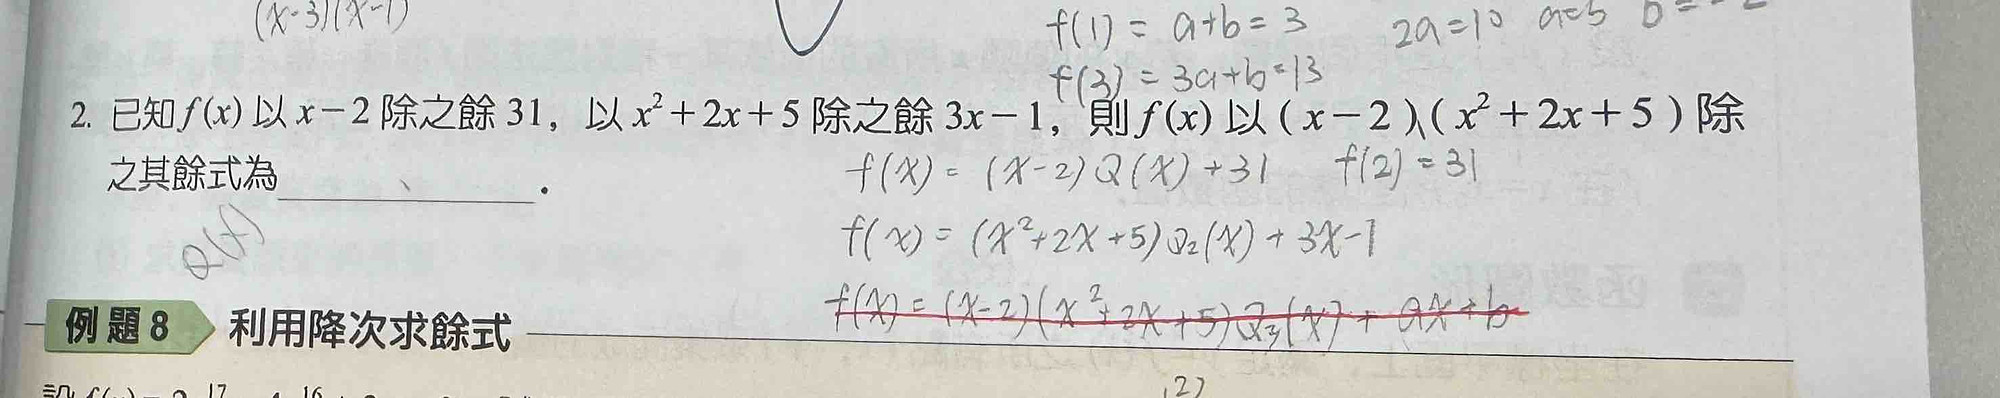 (x-3)(x-1)
f(1) = a+b = 3 2a=10 a=5
f(3) = 3a+b=13
2. 已知 f(x) 以 x－2 除之餘 31，以 x²＋2x＋5 除之餘 3x－1，則 f(x) 以 (x－2)(x²＋2x＋5) 除
之其餘式為 ________ .
f(x) = (x-2)Q(x)+31 f(2)=31
f(x) = (x²+2x+5)Q₂(x)+3x-1
f(x) = (x-2)(x²+2x+5)Q₃(x)+ax+b
例題8 利用降次求餘式